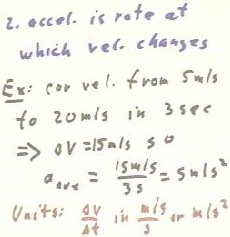 2. accel. is rate at
which vel. changes
Ex: car vel. from 5m/s
to 20m/s in 3sec
=> ΔV=15m/s so
a_ave = 15m/s / 3s = 5m/s²
Units: ΔV/Δt in m/s / s or m/s²